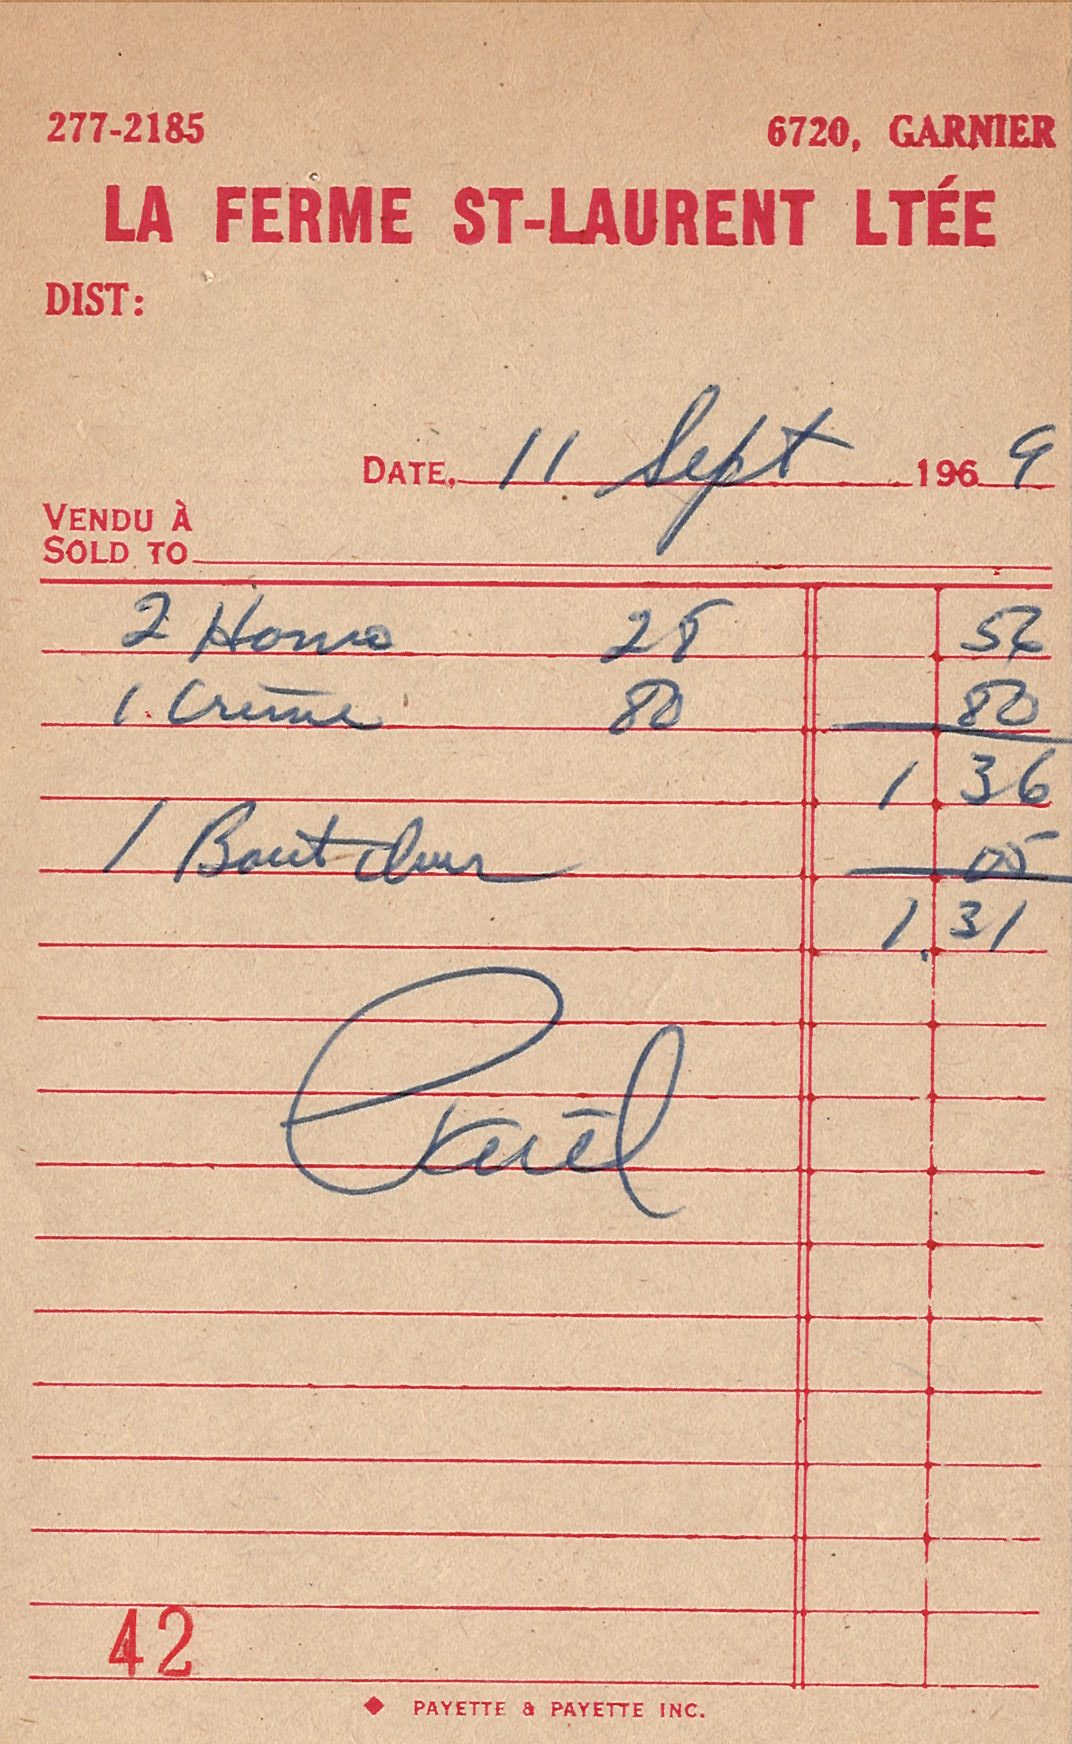 277-2185 6720, GARNIER
LA FERME ST-LAURENT LTÉE
DIST:
DATE. 11 Sept 1969
VENDU À
SOLD TO
2 Homo 28 56
1 Crème 80 80
1 36
1 Bout 05
1.31
42
PAYETTE & PAYETTE INC.